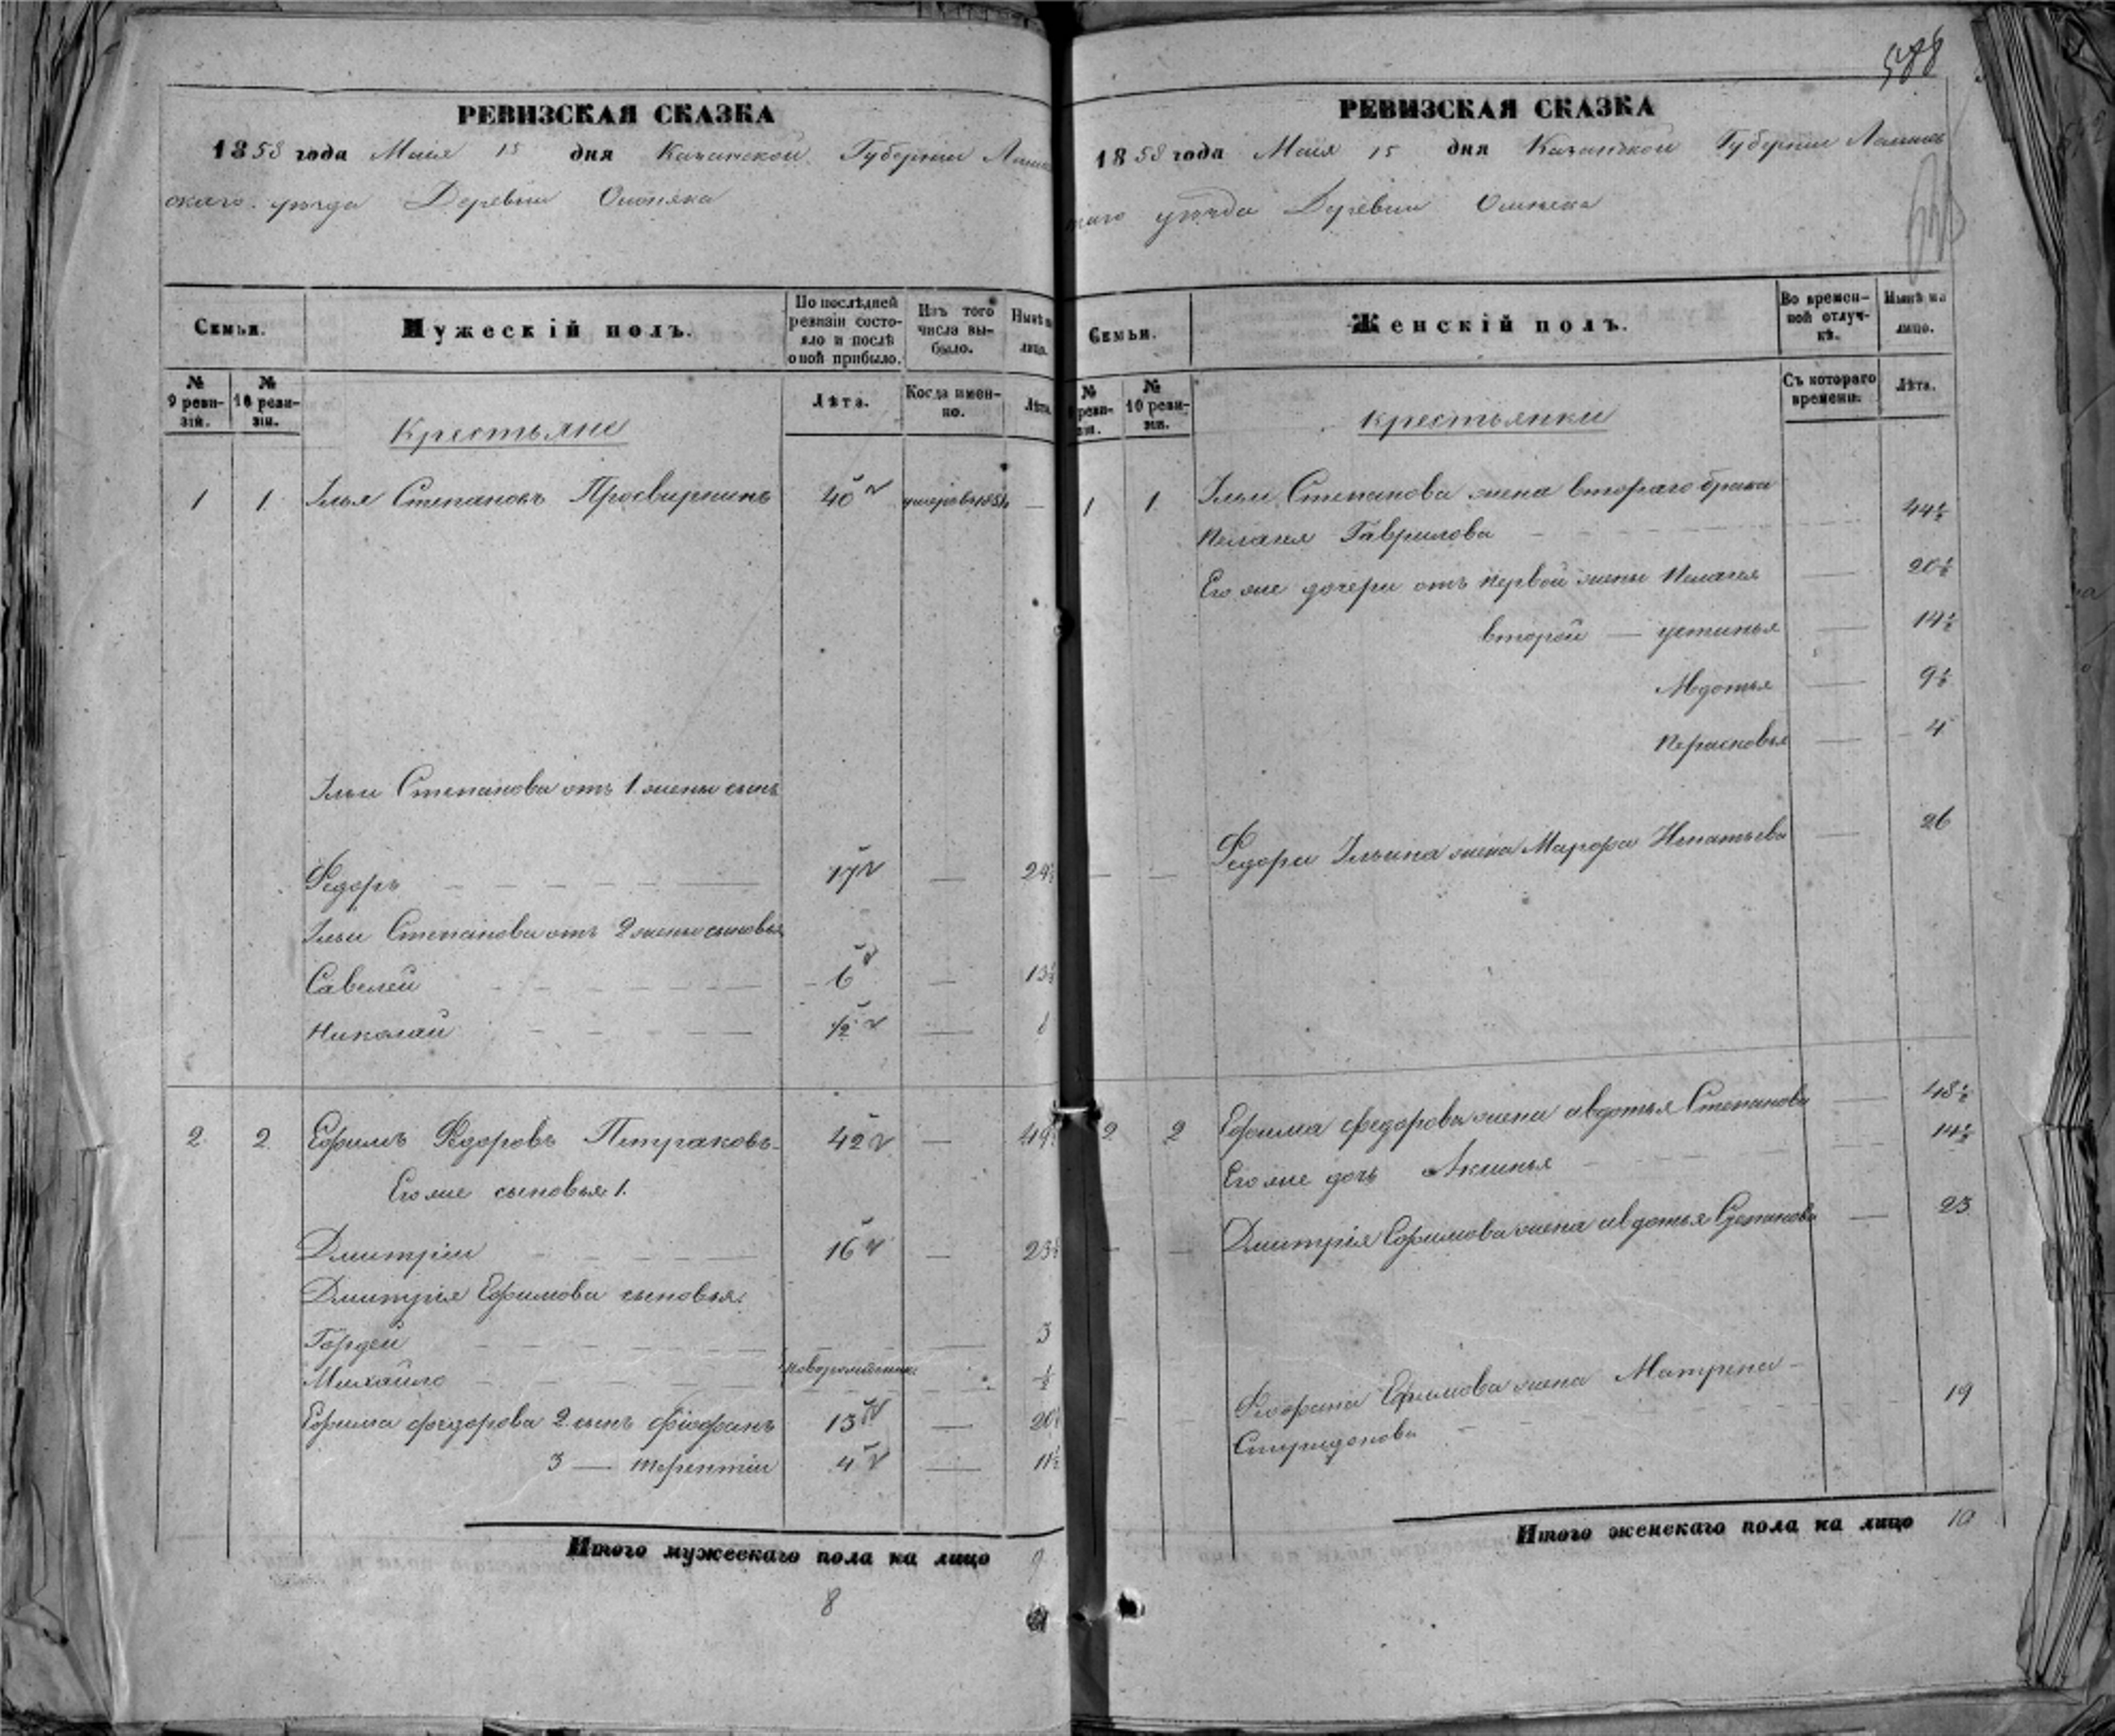 РЕВИЗСКАЯ СКАЗКА
1858 года Маія 15 дня Казанской Губерніи
скаго уѣзда Деревни
Семьи.
Мужескій полъ.
По послѣдней ревизіи состо-
яло и послѣ
оной прибыло.
Изъ того
числа вы-
было.
Нынѣ на
лицо.
№
9 реви-
зіи.
№
10 реви-
зіи.
Лѣта.
Когда имен-
но.
Лѣта.
Крестьяне
1 1 Илья Степановъ Просвирнинъ 40 умеръ въ 1854 —
Ильи Степанова отъ 1 жены сынъ
Федоръ 17 — 24½
Ильи Степанова отъ 2 жены сыновья
Савелей 6 — 13½
Николай ½ — 8
2 2 Ефимъ Федоровъ Петраковъ 42 — 49½
Его же сыновья 1.
Дмитрій 16 — 23½
Дмитрія Ефимова сыновья:
Гордей 3
Михайло новорожденн. ½
Ефима федорова 2 сынъ фіофанъ 13 — 20½
3 — терентій 4 — 11½
Итого мужескаго пола на лицо 9
8
588
РЕВИЗСКАЯ СКАЗКА
1858 года Маія 15 дня Казанской Губерніи
скаго уѣзда Деревни
Семьи.
Женскій полъ.
Во времен-
ной отлуч-
кѣ.
Нынѣ на
лицо.
№
9 реви-
зіи.
№
10 реви-
зіи.
Съ котораго
времени.
Лѣта.
крестьянки
1 1 Ильи Степанова жена втораго брака
Пелагея Гаврилова 44½
Его же дочери отъ первой жены Пелагея — 20½
второй — устинья — 14½
Авдотья — 9½
Перасковья — 4
Федора Ильина жена Марфа Игнатьева — 26
2 2 Ефима федорова жена авдотья Степанова — 48½
Его же дочь Аксинья 14½
Дмитрія Ефимова жена авдотья Степанова — 23
Феофана Ефимова жена Матрена
Спиридонова 19
Итого женскаго пола на лицо 10